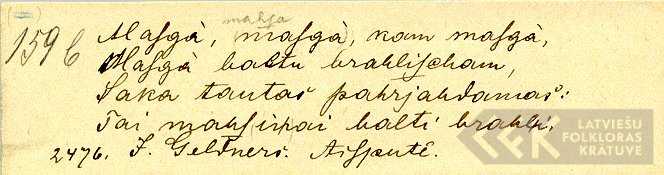 mahsa
1596 Masgà, masgà, kam masgà,
Masgà baltu brahlischam,
Saka tautas pahrjahdamas:
Tai mahsiņai balti brahļi.
2476. J. Geldners. Aisputē.
LATVIEŠU
FOLKLORAS
KRĀTUVE